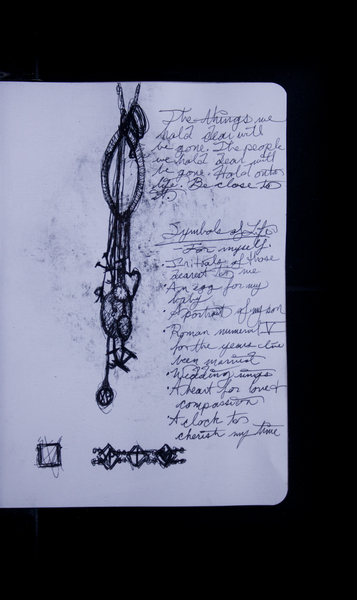 The things we
hold dear will
be gone. The people
we hold dear will
be gone. Hold onto
life. Be close to
it.
Symbols of Life
For myself.
• Initials of those
dearest to me
• An egg for my
baby
• A portrait of my son
• Roman numeral V
for the years I've
been married
• Wedding rings
• A heart for love &
compassion
• A clock to
cherish my time